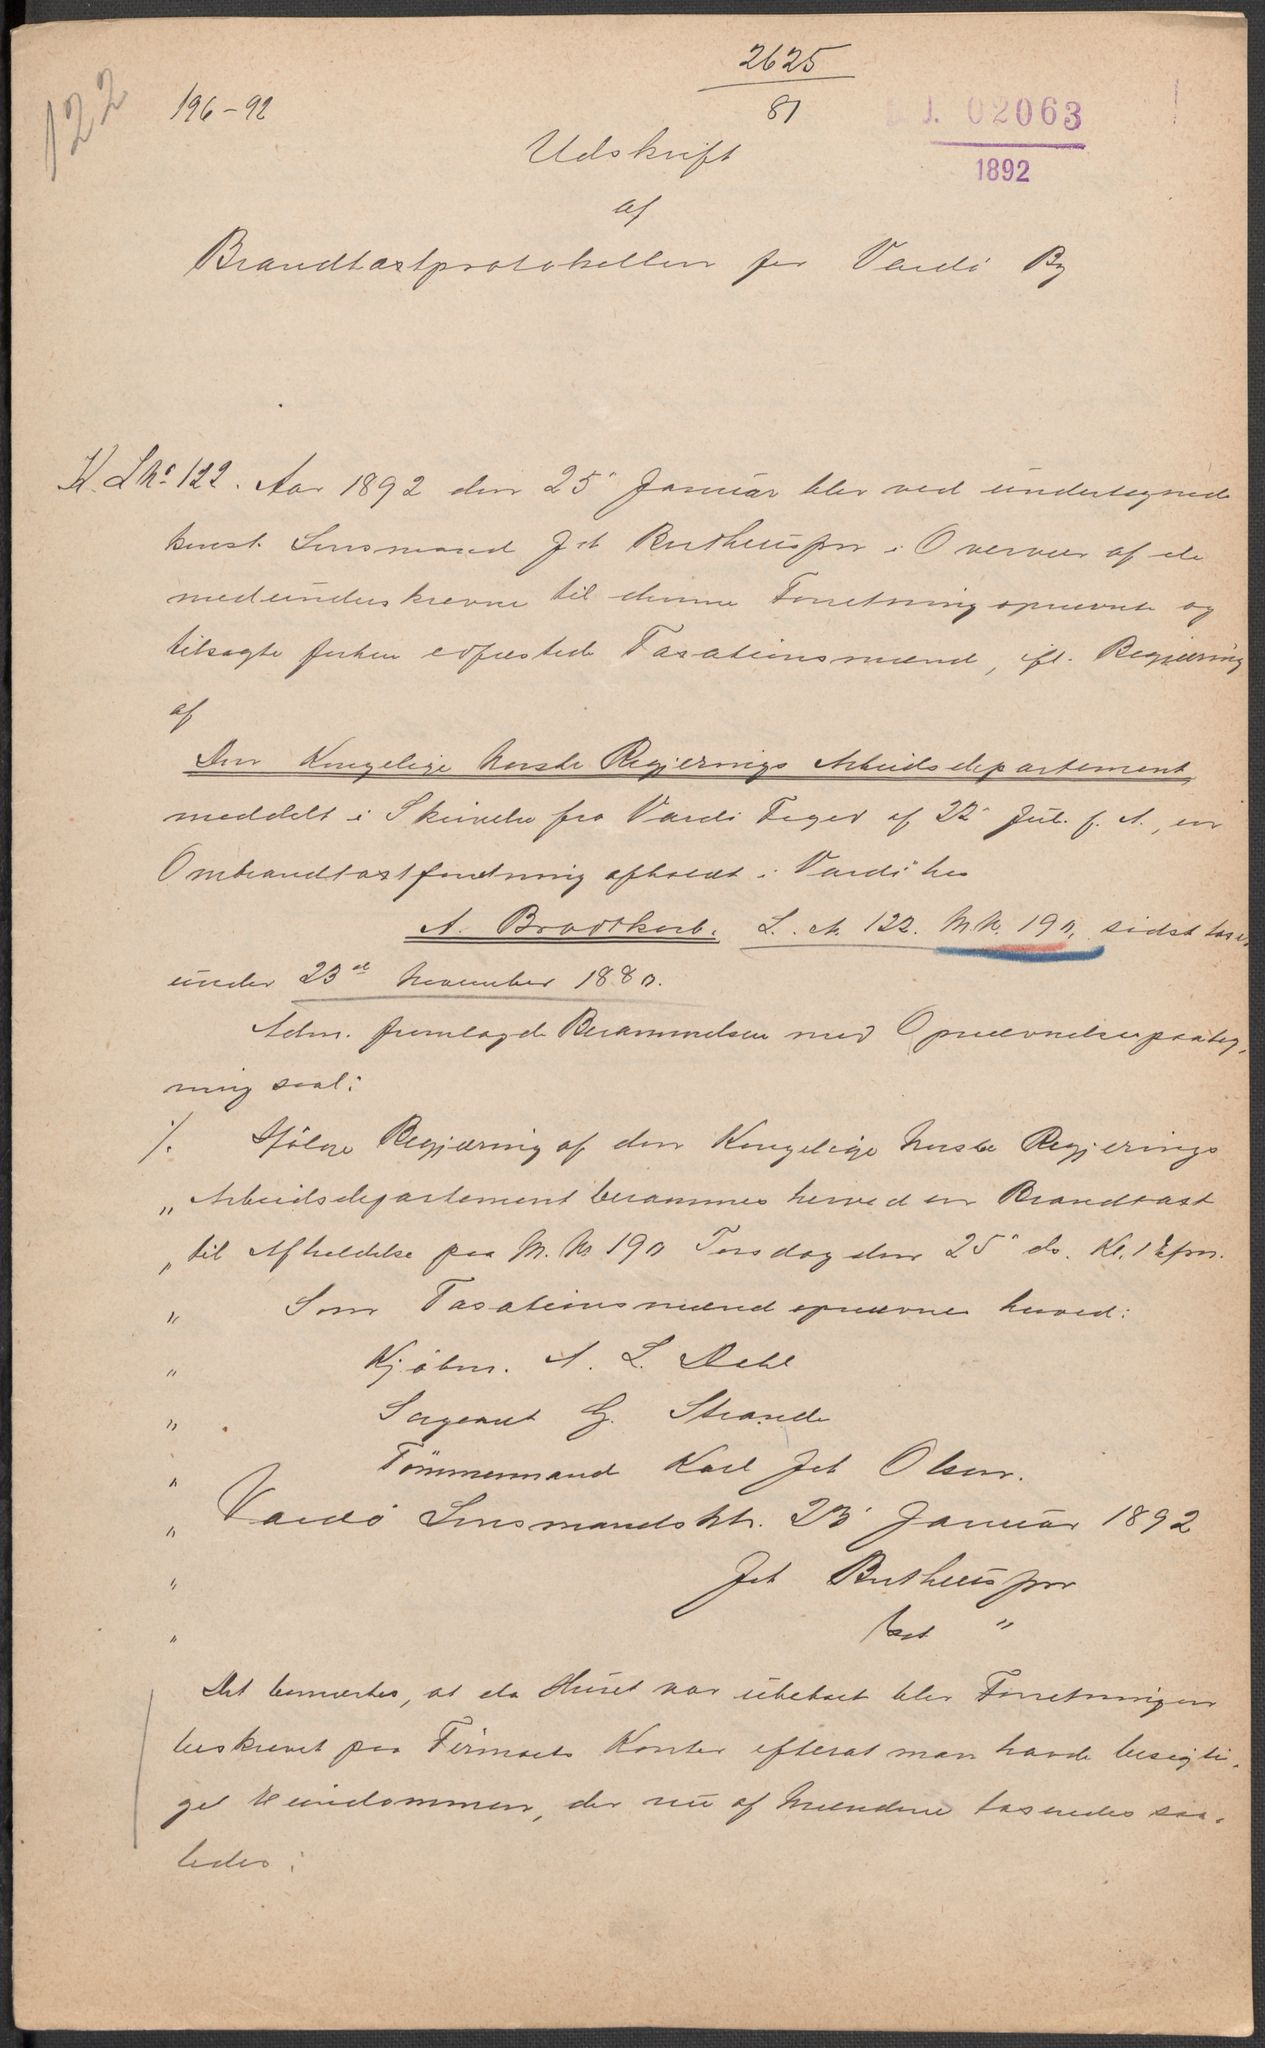 122
196-92
2625
81
J. 02063
1892
Udskrift
af
Brandtaxtprotokollen for Vardö By
K. L No 122. Aar 1892 den 25' Januar blev ved undertegnede
const. Lensmand Joh Bertheussen i Overvær af de
medunderskrevne til denne Forretning opnævnte og
tilsagte forhen edfæstede Taxationsmænd, ifl. Begjæring
af
Den Kongelige Norske Regjerings Arbeidsdepartement,
meddelt i Skrivelse fra Vardö Foged af 22' Jul. f. A., en
Ombrandtaxtforretning afholdt i Vardö hos
A. Brodtkorb. L. No. 122. M.N. 190, sidst taxt
under 23de November 1880.
Adm. fremlagde Berammelsen med Opnævnelsespaateg-
ning saal:
./. Ifölge Begjæring af den Kongelige Norske Regjerings
„ Arbeidsdepartement berammes herved en Brandtaxt
„ til Afholdelse paa M. No 190 Torsdag den 25' ds. Kl. 1 Efm.
„ Som Taxationsmænd opnævnes herved:
„ Kjöbm. A. L. Dahl
„ Sergeant G. Strande
„ Tömmermand Karl Joh Olsen.
„ Vardö Lensmandsktr. 23' Januar 1892
„ Joh Bertheussen
„ kst „
Det bemærkes, at da Huset var ubeboet blev Forretningen
beskrevet paa Firmaets Kontor efterat man havde besigti-
get Eiendommen, der nu af Mændene taxeredes saa-
ledes: